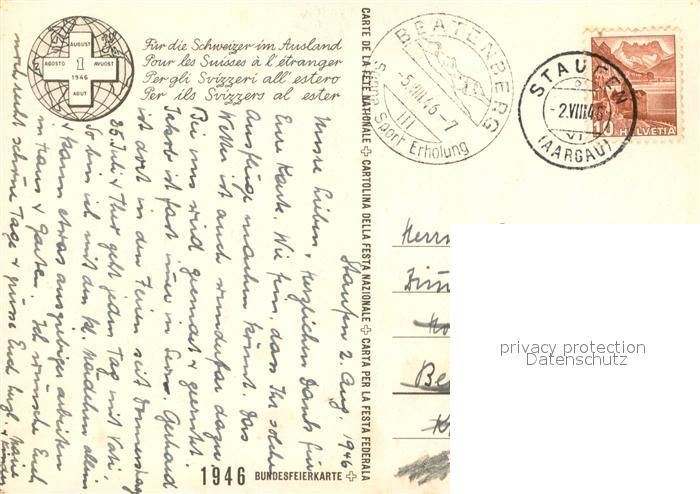 AUGUST
AGOSTO 1 AVUOST
1946
AOUT
Für die Schweizer im Ausland
Pour les Suisses à l'étranger
Per gli Svizzeri all' estero
Per ils Svizzers al ester
CARTE DE LA FÊTE NATIONALE + CARTOLINA DELLA FESTA NAZIONALE + CARTA PER LA FESTA FEDERALA
1946 BUNDESFEIERKARTE +
BEATENBERG
-5.VIII.46.-7
III
Sport Erholung
STAUFEN
-2.VIII.46
VI
(AARGAU)
10 HELVETIA
Staufen 2 Aug. 1946
Unsere Lieben, Herzlichen Dank für
Eure Karte. Wie fein, dass Ihr solche
Ausflüge machen könnt. Das
Wetter ist auch wunderbar dazu
Bei uns wird gemalt & geweisst
ist fast immer in Gerhard
ist dort in den Ferien seit Donnerstag
25. Juli & Thor geht jeden Tag mit Vati.
So bin ich mit den kl. Mädchen allein
& kann etwas ausgiebiger arbeiten
in Haus & Garten. Ich wünsche Euch
noch recht schöne Tage & grüsse Euch herzl.
Herrn
privacy protection
Datenschutz